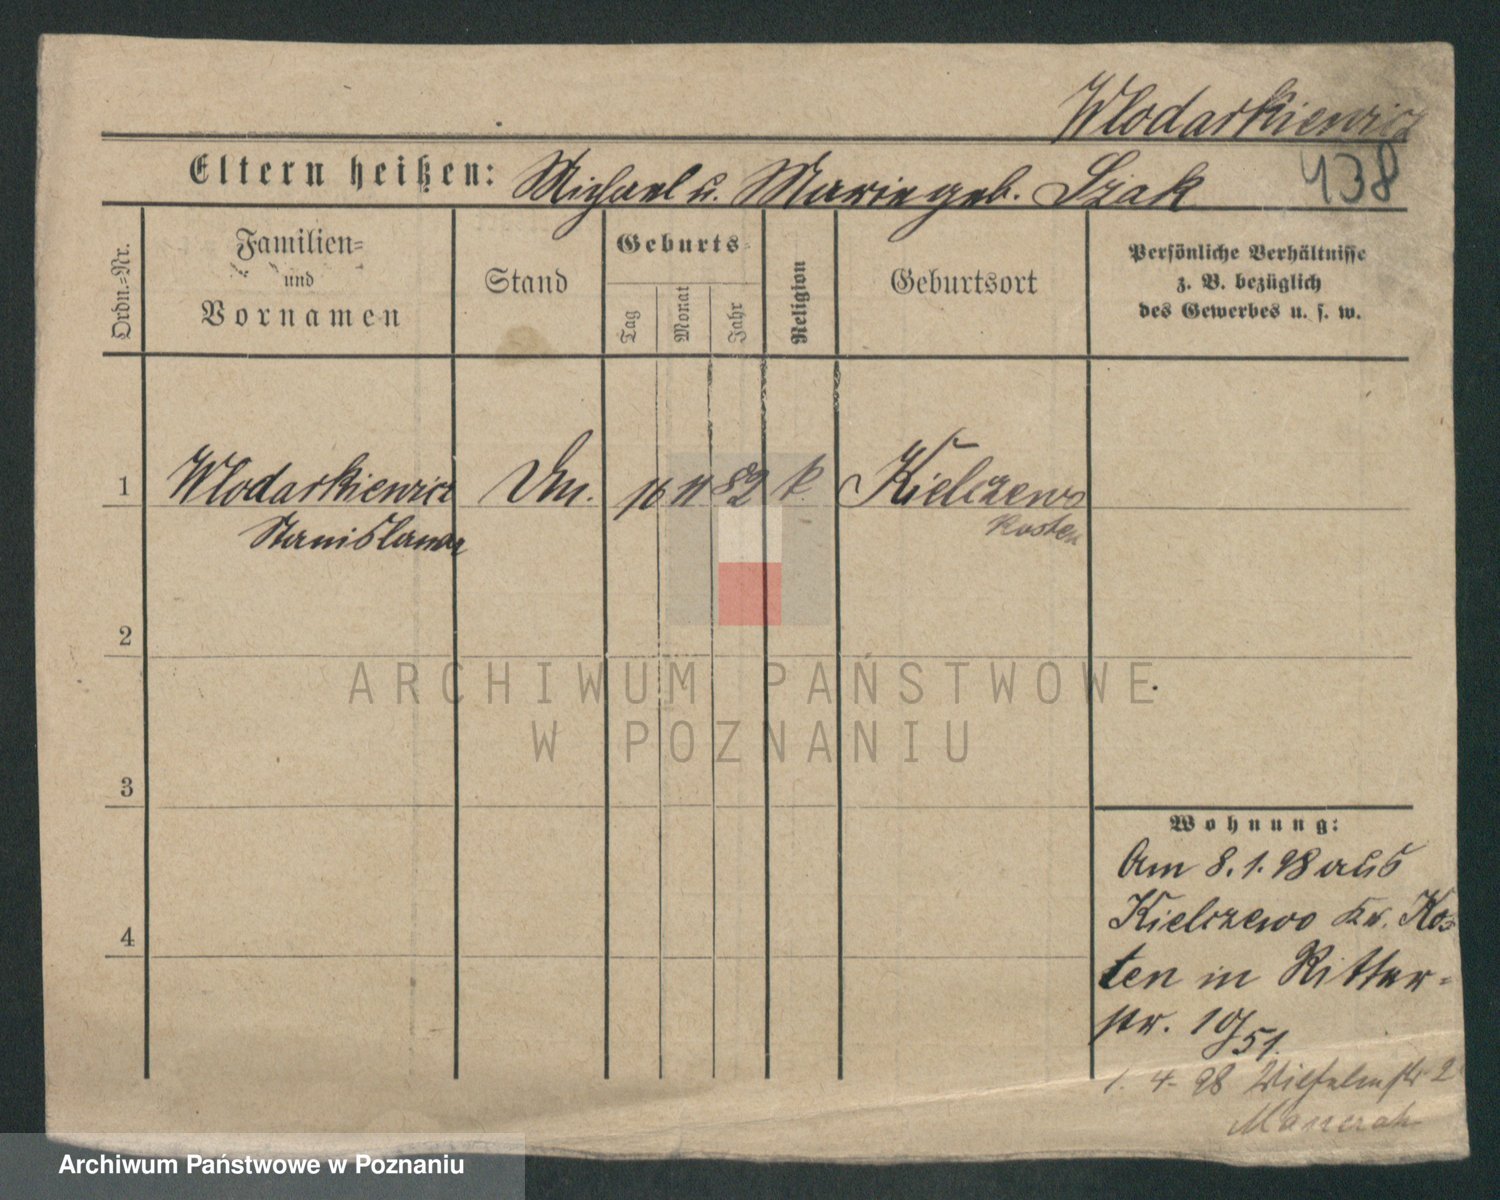 Wlodarkiewicz
438
Eltern heißen: Michael u. Marie geb. Szak
Ordn.-Nr.
Familien-
und
Vornamen
Stand
Geburts-
Tag
Monat
Jahr
Religion
Geburtsort
Persönliche Verhältnisse
z. B. bezüglich
des Gewerbes u. s. w.
1 Wlodarkiewicz 16 11 82 k. Kielczewo
Stanislawa Kosten
2
3
4
Wohnung:
Am 8.1.98 aus
Kielczewo Kr. Kos-
ten in Ritter-
str. 10/51.
1. 4. 98 Wilhelmstr 2
ARCHIWUM PAŃSTWOWE
W POZNANIU
Archiwum Państwowe w Poznaniu